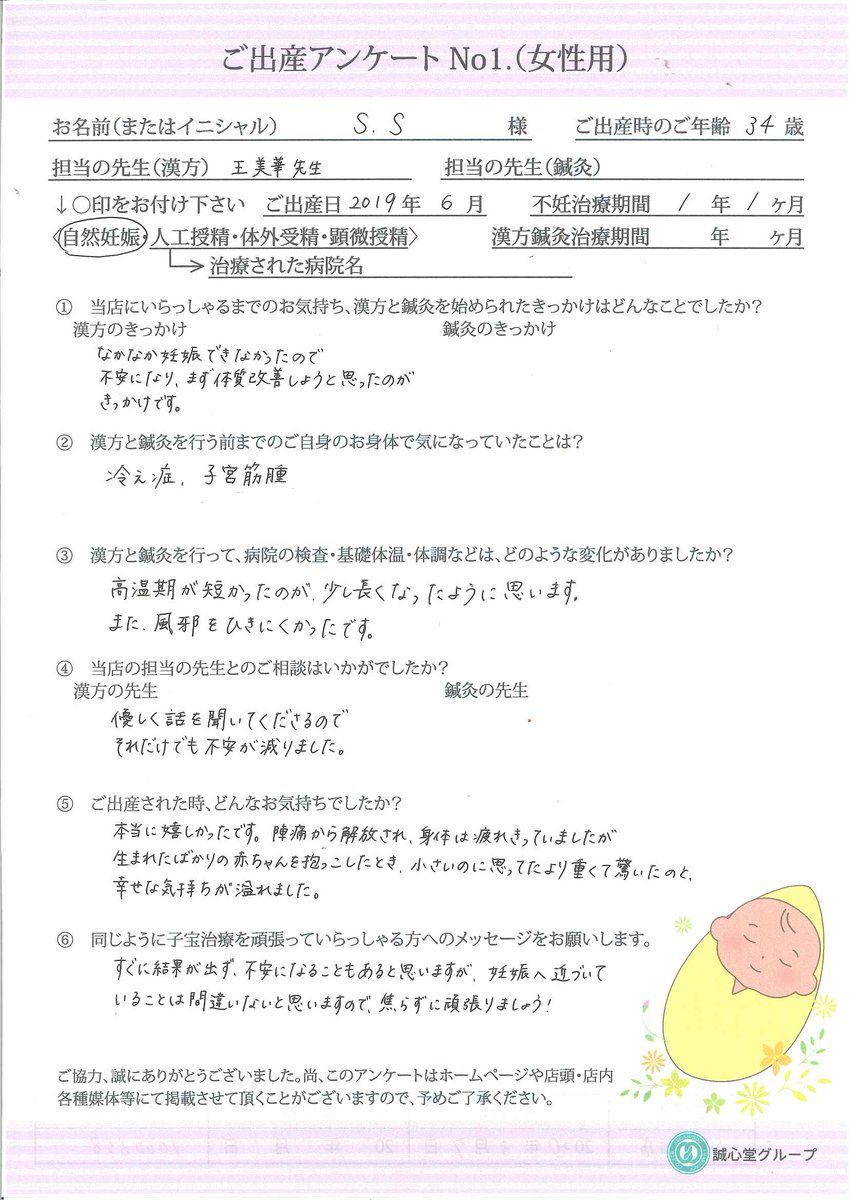 ご出産アンケート No1.（女性用）
お名前（またはイニシャル） S.S 様 ご出産時のご年齢 34 歳
担当の先生（漢方） 王美華先生 担当の先生（鍼灸）
↓〇印をお付け下さい ご出産日 2019年 6月 不妊治療期間 1年 1ヶ月
〈自然妊娠・人工授精・体外受精・顕微授精〉 漢方鍼灸治療期間 年 ヶ月
治療された病院名
① 当店にいらっしゃるまでのお気持ち、漢方と鍼灸を始められたきっかけはどんなことでしたか？
漢方のきっかけ 鍼灸のきっかけ
なかなか妊娠できなかったので
不安になり、まず体質改善しようと思ったのが
きっかけです。
② 漢方と鍼灸を行う前までのご自身のお身体で気になっていたことは？
冷え症、子宮筋腫
③ 漢方と鍼灸を行って、病院の検査・基礎体温・体調などは、どのような変化がありましたか？
高温期が短かったのが、少し長くなったように思います。
また、風邪をひきにくかったです。
④ 当店の担当の先生とのご相談はいかがでしたか？
漢方の先生 鍼灸の先生
優しく話を聞いてくださるので
それだけでも不安が減りました。
⑤ ご出産された時、どんなお気持ちでしたか？
本当に嬉しかったです。陣痛から解放され、身体は疲れきっていましたが
生まれたばかりの赤ちゃんを抱っこしたとき、小さいのに思ってたより重くて驚いたのと、
幸せな気持ちが溢れました。
⑥ 同じように子宝治療を頑張っていらっしゃる方へのメッセージをお願いします。
すぐに結果が出ず、不安になることもあると思いますが、妊娠へ近づいて
いることは間違いないと思いますので、焦らずに頑張りましょう！
ご協力、誠にありがとうございました。尚、このアンケートはホームページや店頭・店内
各種媒体等にて掲載させて頂くことがございますので、予めご了承ください。
誠心堂グループ